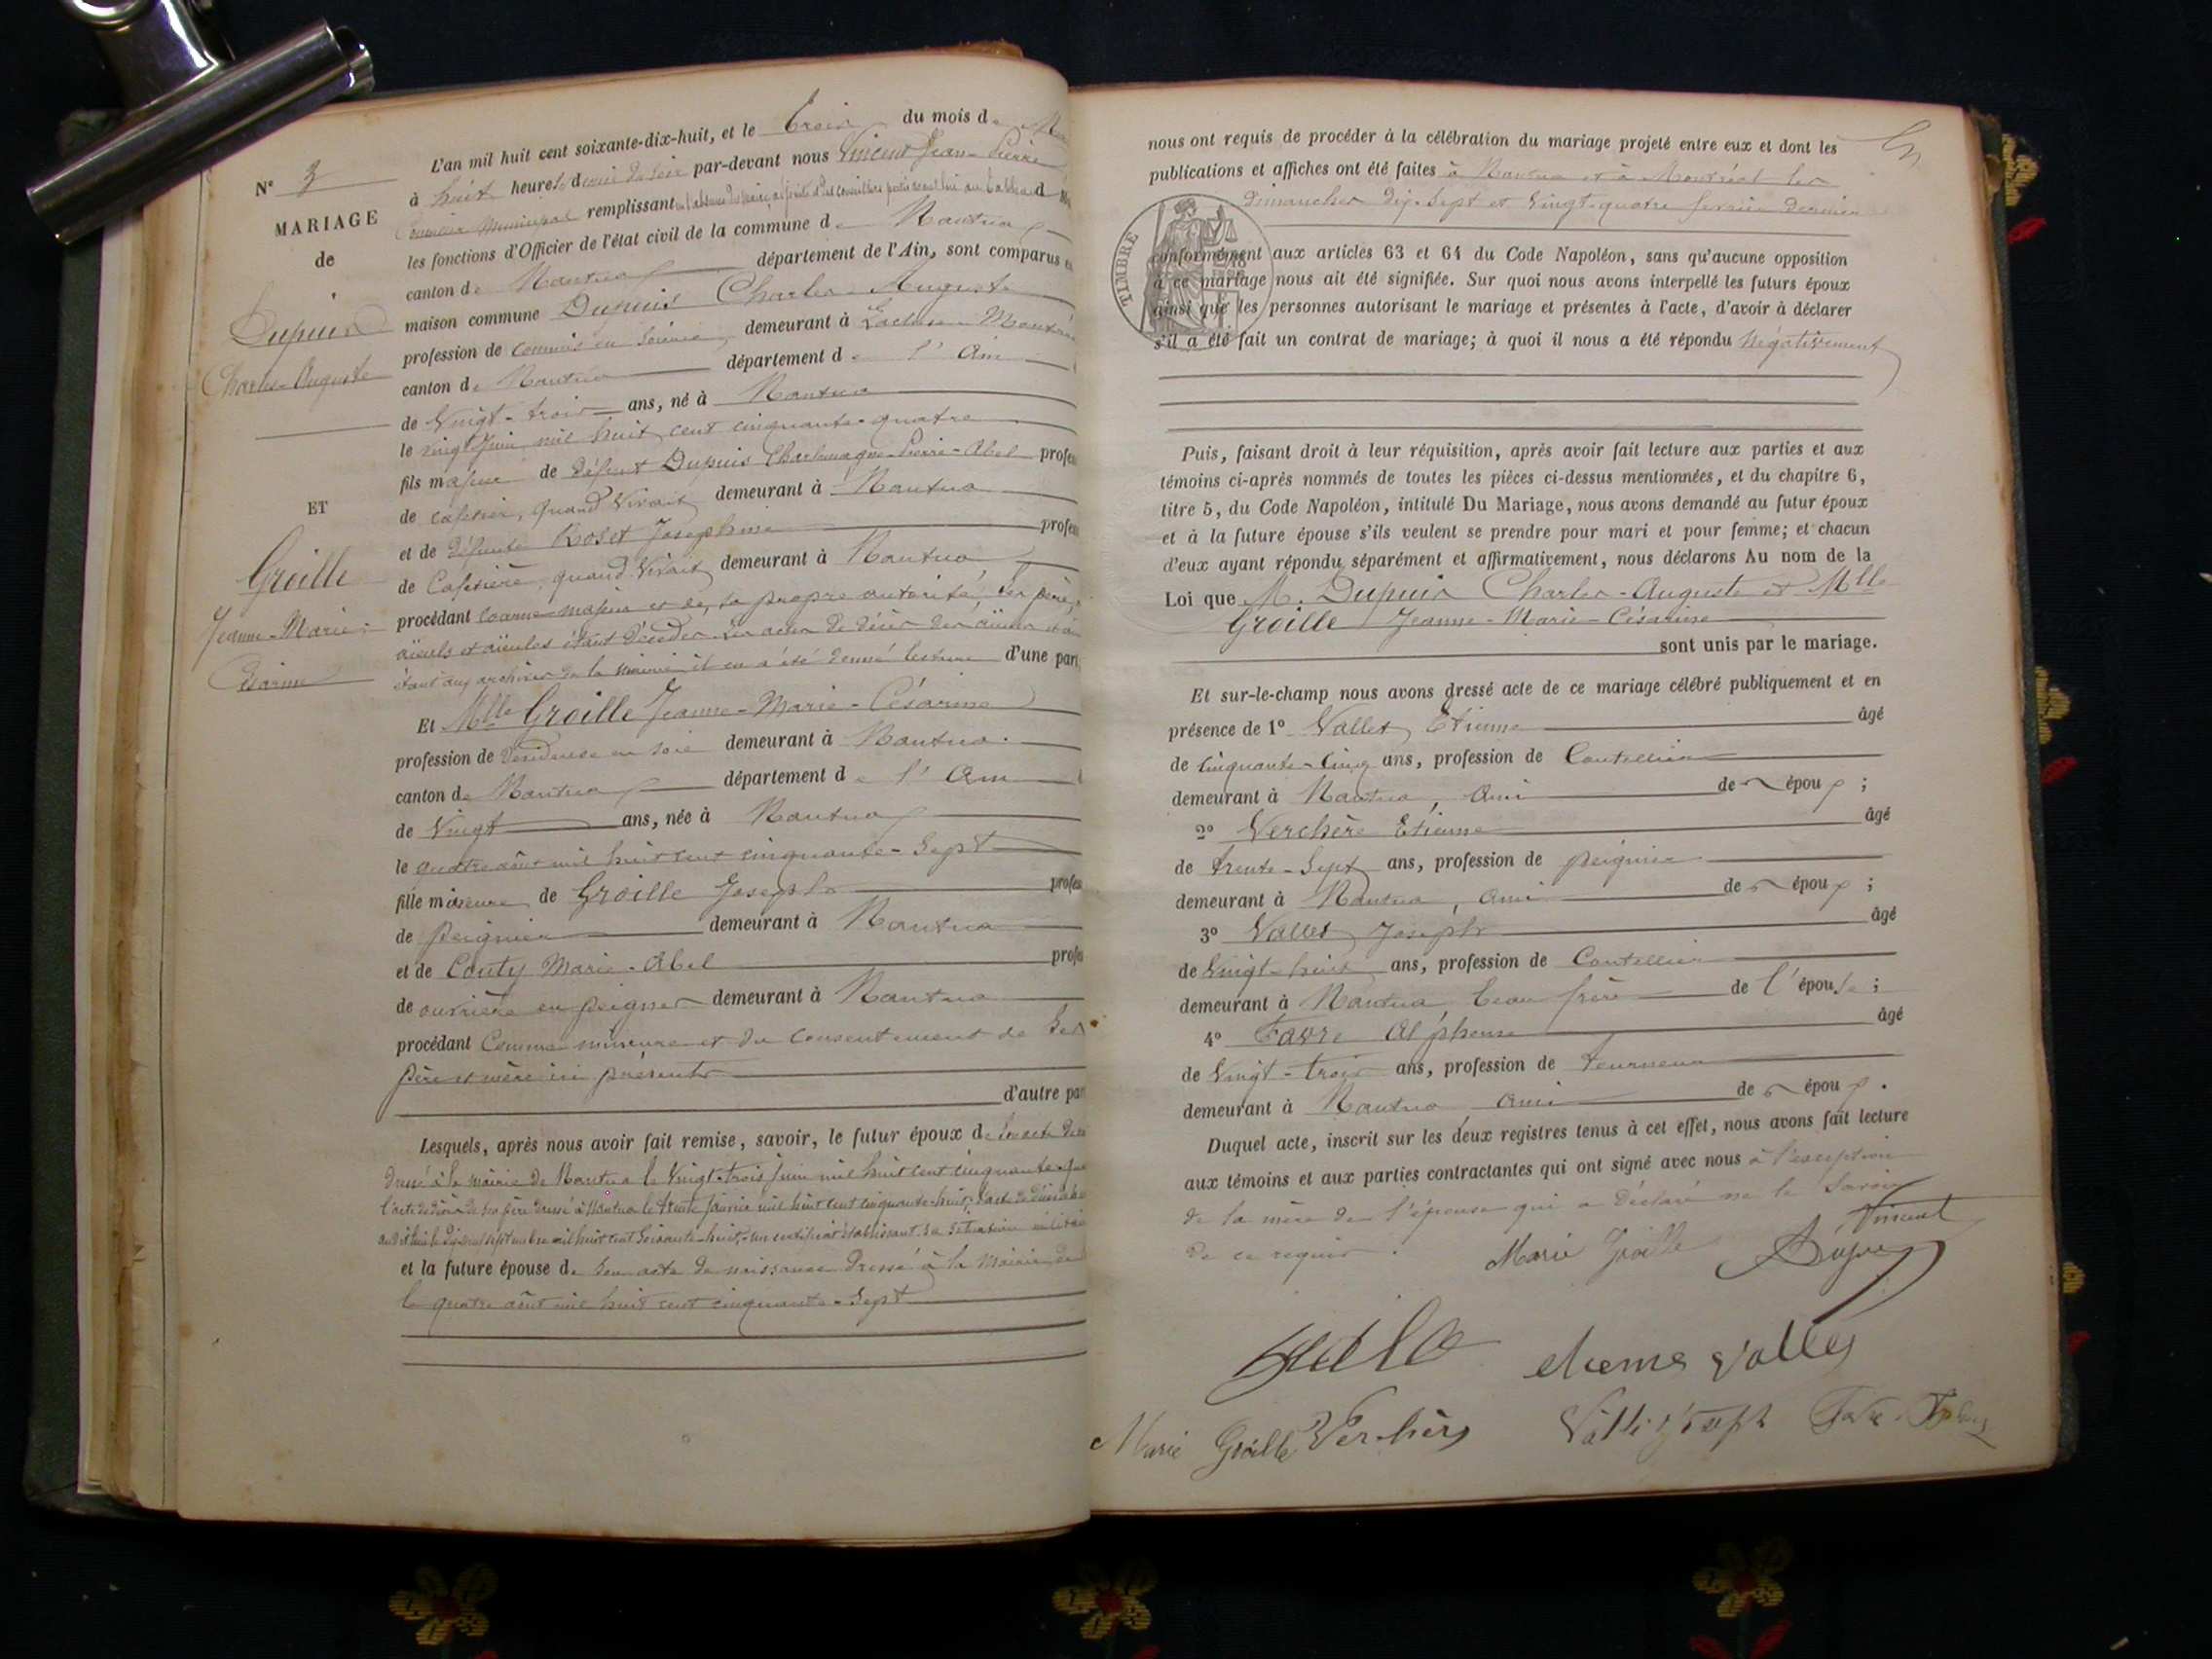 N° 3
MARIAGE
de
Dupuis
Charles-Auguste
ET
Groille
Jeanne-Marie-
Césarine
L'an mil huit cent soixante-dix-huit, et le trois du mois de
à huit heures demie du soir par-devant nous Vincent Jean-Pierre
Conseiller Municipal remplissant
les fonctions d'Officier de l'état civil de la commune de Nantua
canton de Nantua département de l'Ain, sont comparus en
maison commune Dupuis Charles-Auguste
profession de commis en soierie demeurant à Lacluse-Montré
canton de Nantua département de l'Ain
de Vingt-trois ans, né à Nantua
le vingt juin mil huit cent cinquante-quatre
fils majeur de défunt Dupuis Charlemagne-Pierre-Abel profes
de cafetier, quand vivait demeurant à Nantua
et de défunte Roset Josephine profes
de Cafetière, quand vivait demeurant à Nantua
procédant comme majeur et de sa propre autorité, ses père,
aïeuls et aïeules étant décédés. Les actes de décès des aïeux
étant aux archives de la mairie il en a été donné lecture d'une part,
Et Mlle Groille Jeanne-Marie-Césarine
profession de dévideuse en soie demeurant à Nantua.
canton de Nantua département de l'Ain
de Vingt ans, née à Nantua
le quatre août mil huit cent cinquante-sept
fille mineure de Groille Joseph profes
de peignier demeurant à Nantua
et de Couty Marie-Abel profes
de ouvrière en peignes demeurant à Nantua
procédant Comme mineure et du consentement de ses
père et mère ici présents
d'autre part
Lesquels, après nous avoir fait remise, savoir, le futur époux de
dressé à la mairie de Nantua le Vingt-trois juin mil huit cent cinquante-qua
l'acte de décès de son père dressé à Nantua le trente janvier mil huit cent cinquante-huit,
mil huit cent soixante-huit, un certificat établissant sa situation militaire
et la future épouse de son acte de naissance dressé à la Mairie de
le quatre août mil huit cent cinquante-sept
nous ont requis de procéder à la célébration du mariage projeté entre eux et dont les
publications et affiches ont été faites à Nantua et à Montréal les
dimanches dix-sept et vingt-quatre février dernier
TIMBRE
conformément aux articles 63 et 64 du Code Napoléon, sans qu'aucune opposition
à ce mariage nous ait été signifiée. Sur quoi nous avons interpellé les futurs époux
ainsi que les personnes autorisant le mariage et présentes à l'acte, d'avoir à déclarer
s'il a été fait un contrat de mariage; à quoi il nous a été répondu négativement
Puis, faisant droit à leur réquisition, après avoir fait lecture aux parties et aux
témoins ci-après nommés de toutes les pièces ci-dessus mentionnées, et du chapitre 6,
titre 5, du Code Napoléon, intitulé Du Mariage, nous avons demandé au futur époux
et à la future épouse s'ils veulent se prendre pour mari et pour femme; et chacun
d'eux ayant répondu séparément et affirmativement, nous déclarons Au nom de la
Loi que M. Dupuis Charles-Auguste et Mlle
Groille Jeanne-Marie-Césarine
sont unis par le mariage.
Et sur-le-champ nous avons dressé acte de ce mariage célébré publiquement et en
présence de 1° Vallet Etienne âgé
de cinquante-cinq ans, profession de Coutellier
demeurant à Nantua, ami de épou ;
2° Verchère Etienne âgé
de trente-sept ans, profession de peignier
demeurant à Nantua, ami de épou ;
3° Vallet Joseph âgé
de vingt-huit ans, profession de Coutellier
demeurant à Nantua beau frère de l'épouse ;
4° Favre Alphonse âgé
de Vingt-trois ans, profession de tourneur
demeurant à Nantua ami de épou .
Duquel acte, inscrit sur les deux registres tenus à cet effet, nous avons fait lecture
aux témoins et aux parties contractantes qui ont signé avec nous à l'exception
de la mère de l'épouse qui a déclaré ne le savoir
de ce requis.
Marie Groille Dupuis Vincent
Groille etienne vallet
Marie Groille Verchère Vallet Joseph Favre